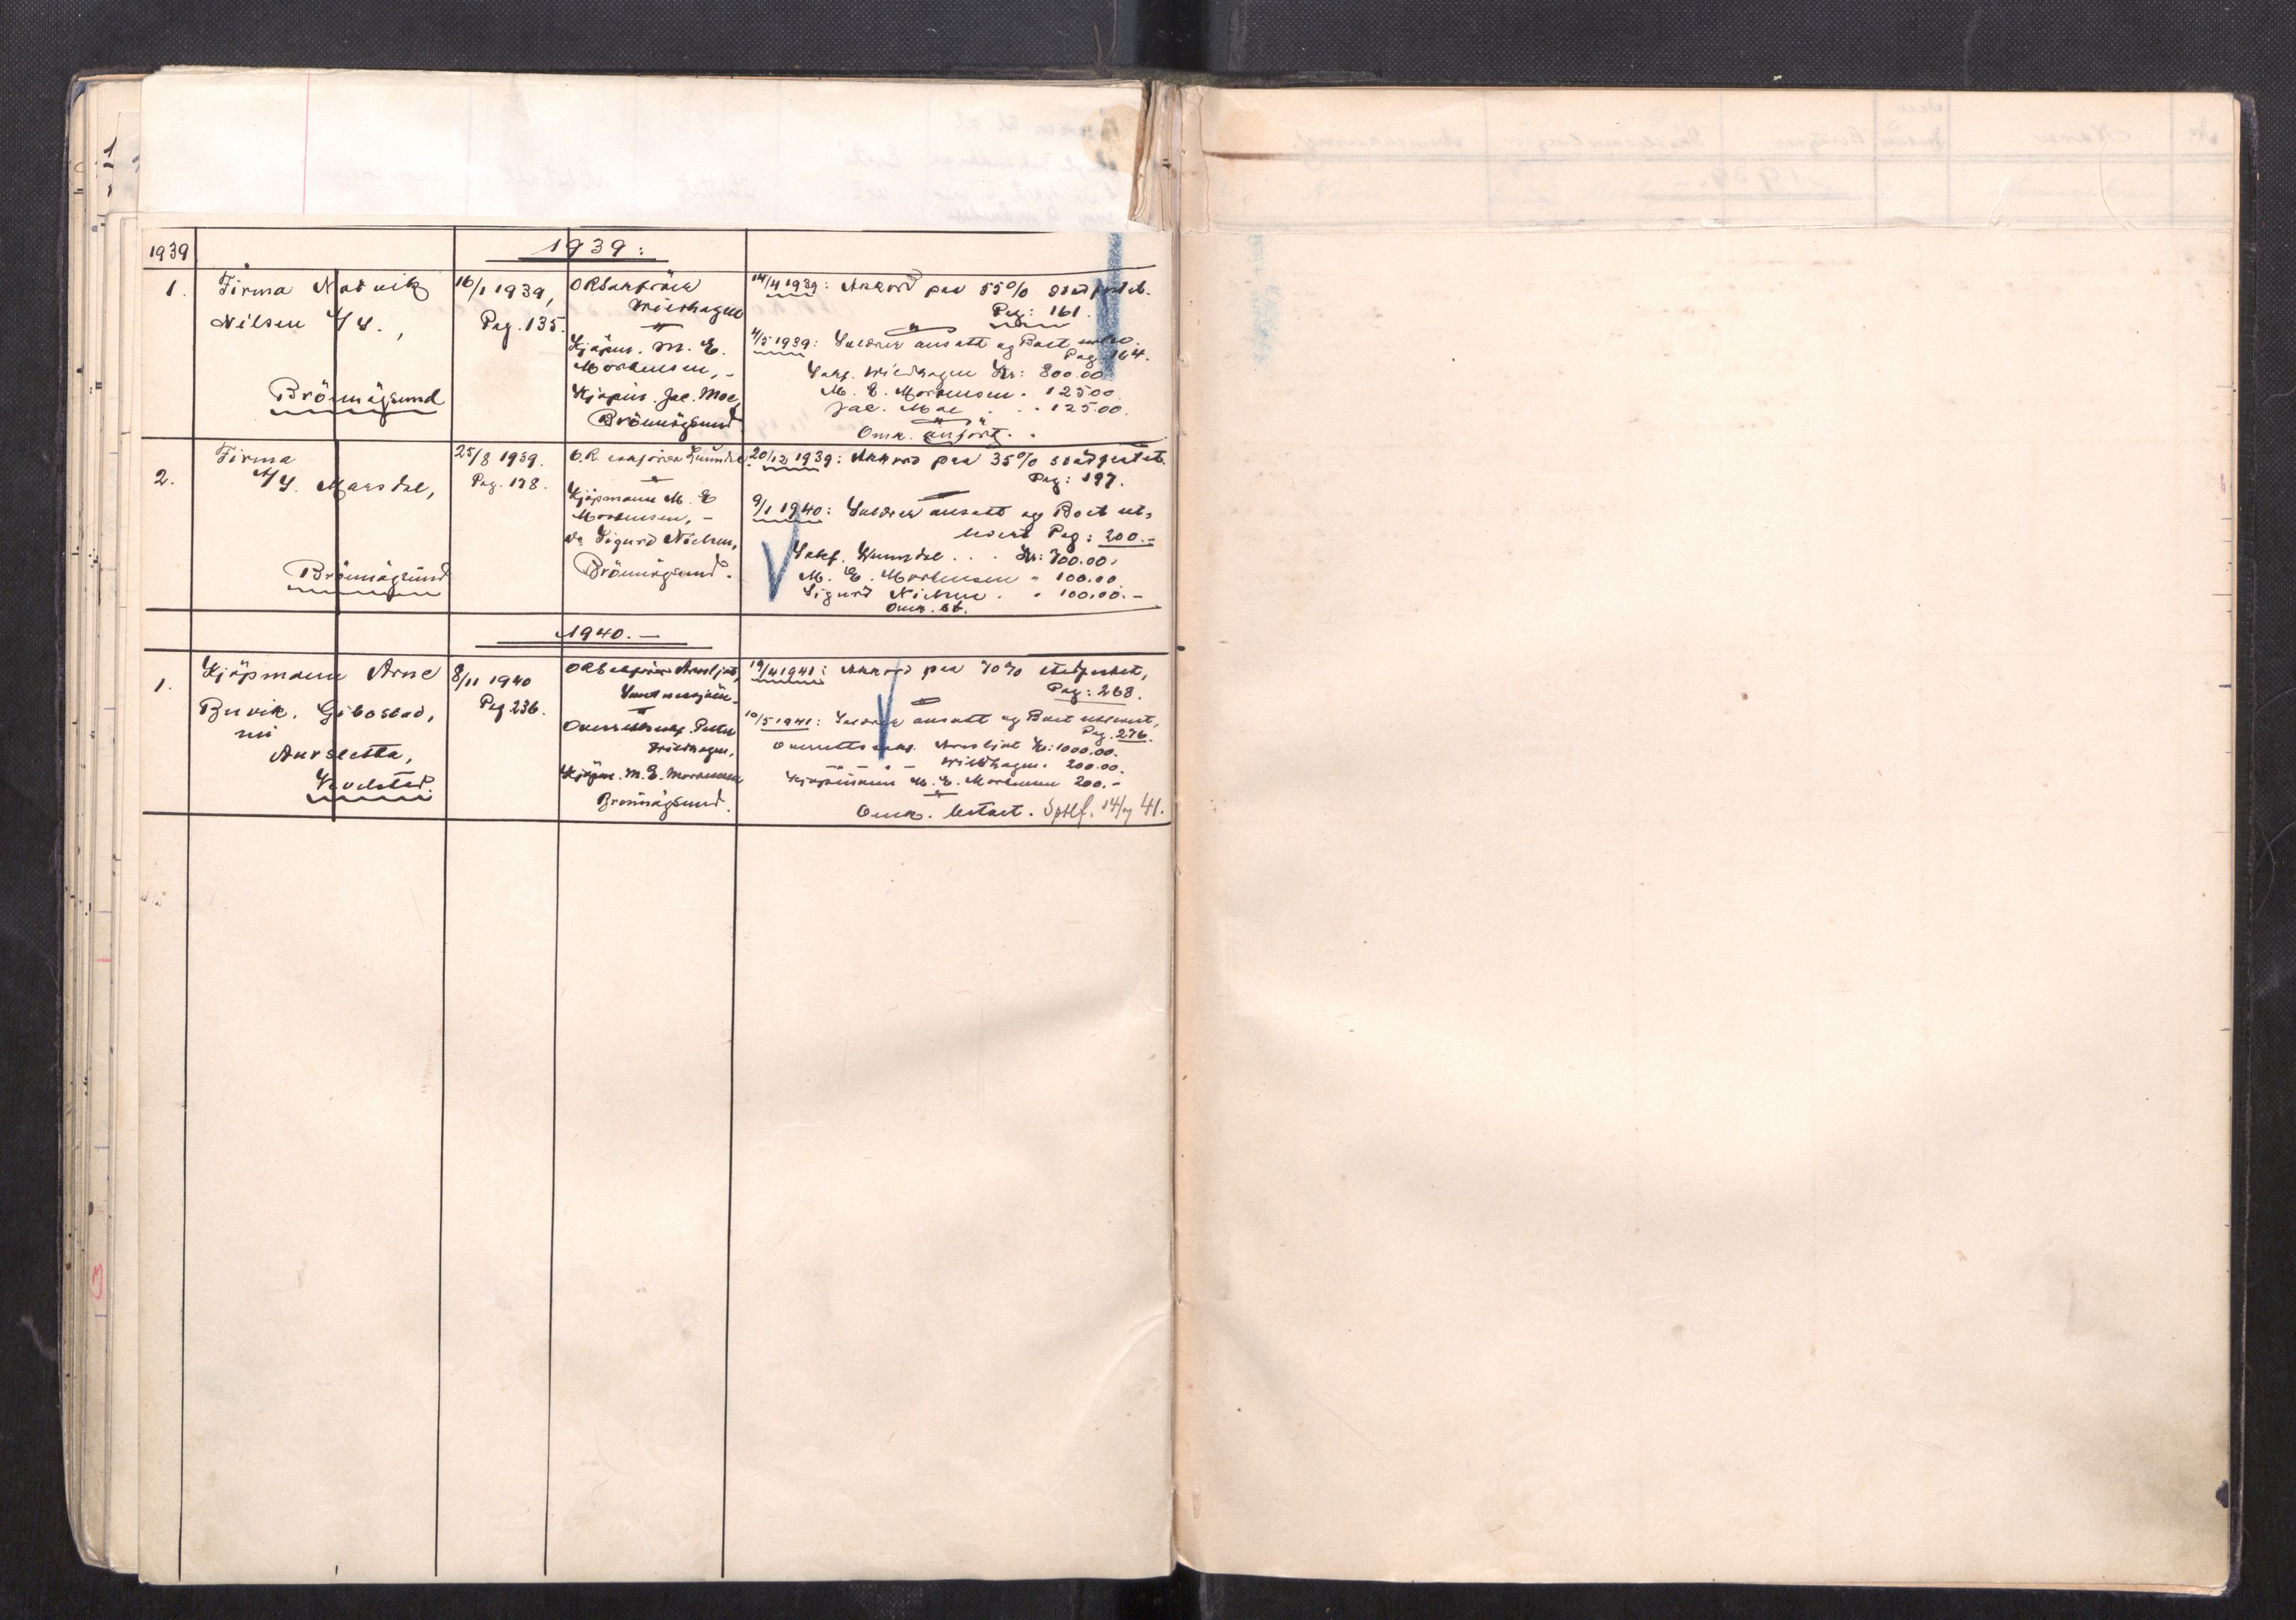 1939
1939:
1.
Firma Nordvik
Nilsen A/S.,
Brönnöysund
16/1 1939,
Pag. 135.
ORSakförer
Wildhagen
Kjöpm. M. E.
Mortensen, -
Kjöpm. Jac. Moe,
Brönnöysund
14/4 1939: Akkord paa 55%
Pag: 161.
4/5 1939: Salærer ansatt og Boet
Pag. 164.
Sakf. Wildhagen Kr: 800.00
M. E. Mortensen " 125.00
Jac. Moe . . " 125.00.
Omk. anfört.
2.
Firma
A/S. Marsdal,
Brönnöysund
25/8 1939.
Pag. 178.
O.R. sakförer
Kjöpmann M. E
Mortensen, -
Do Sigurd Nielsen,
Brönnöysund.
20/12 1939: Akkord paa 35% stadfestet.
Pag: 197.
9/1 1940: Salærer ansatt og Boet ut-
levert Pag: 200.-
Sakf. . . . Kr: 700.00.
M. E. Mortensen " 100.00
Sigurd Nielsen . " 100.00.-
Omk. bet.
1940.-
1.
Kjöpmann Arne
Buvik, Gibostad,
nu
Aursletta,
Kvelstad.
8/11 1940
Pag 236.
ORSakförer
Overrettssakf. Petter
Wildhagen,
Kjöpm. M. E. Mortensen
Brönnöysund.
19/4 1941: Akkord paa 70% stadfestet,
Pag: 268.
10/5 1941: Salærer ansatt og Boet utlevert,
Pag. 276.
Overrettssakf. Kr: 1000.00.
" - " - Wildhagen. 200.00.
Kjöpmann M. E. Mortensen 200.-
Omk. betalt. 41.